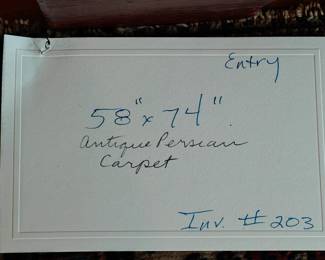 Entry
58" x 74"
Antique Persian
Carpet
Inv. # 203